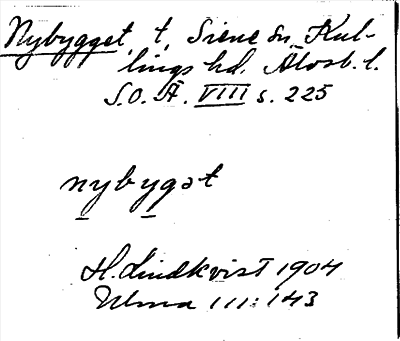 Nybygget, t, Siene sn, Kul-
lings hd. Älvsb. l.
S.O.Ä. VIII s. 225
nybygat
H. Lindkvist 1904
Ulma 111:143